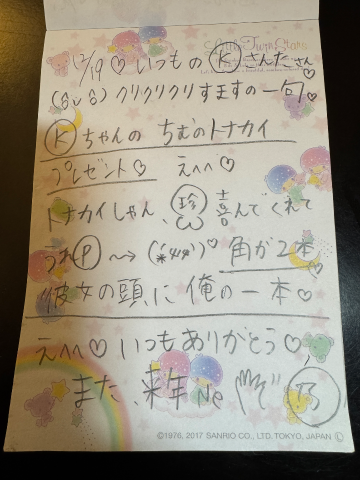 Little Twin Stars
12/19♡ いつもの Ⓚ さんたさん♡
(ô∪ô) クリクリクリ すますの一句♡
Ⓚ ちゃんの ちむのトナカイ
プレゼント♡ えへへ♡
トナカイしゃん、珍 喜んでくれて
うれⓅ〜→ 角が2本♡
彼女の頭に 俺の一本♡
えへへ♡ いつもありがとう♡
また、来年Ne
©1976, 2017 SANRIO CO., LTD. TOKYO, JAPAN Ⓛ